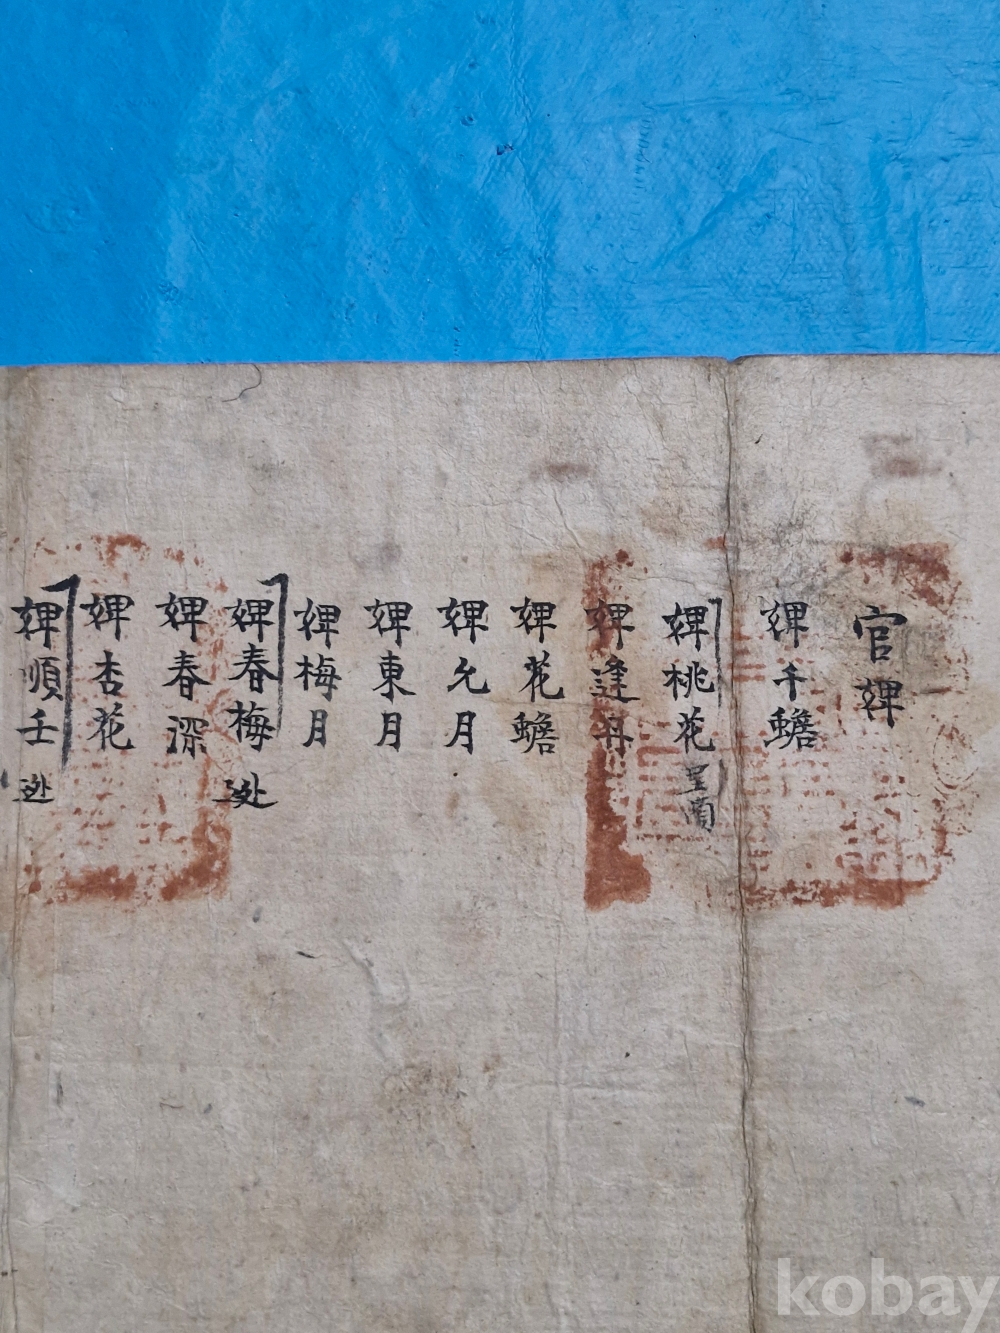 官婢
婢千蟾
婢桃花
婢逢冉
婢花蟾
婢允月
婢東月
婢梅月
婢春梅
婢春深
婢杏花
婢順壬
kobay